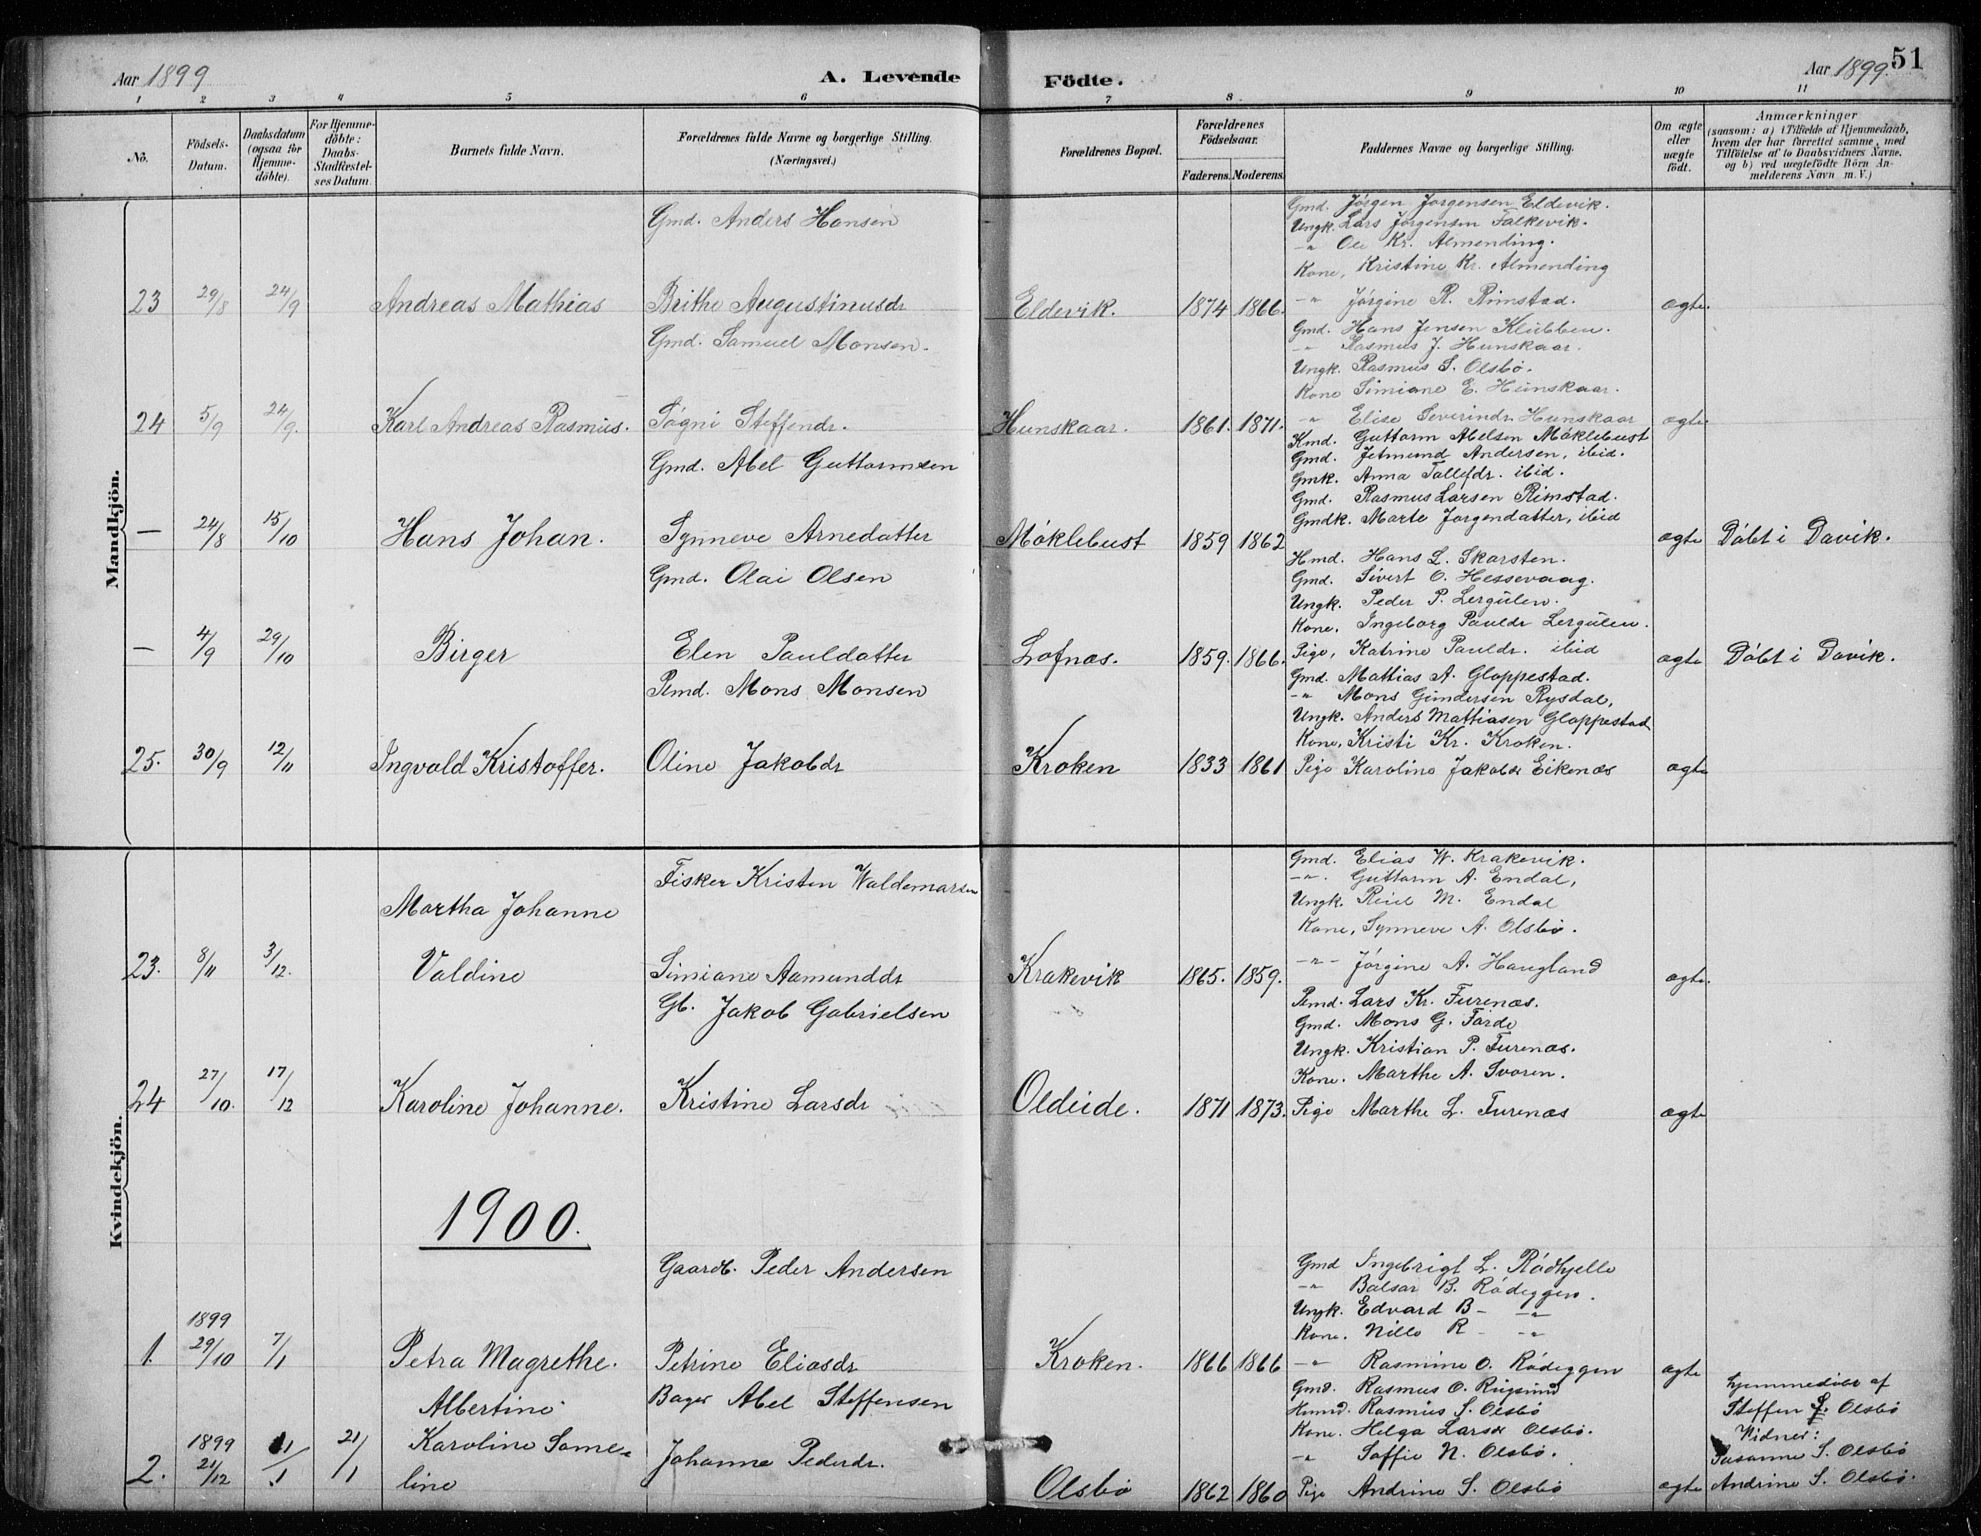 Aar 1899
A. Levende Födte.
Aar 1899.
51
1 2 3 4 5 6 7 8 9 10 11
No.
Födsels-Datum.
Daabsdatum (ogsaa for Hjemme-döbte).
For Hjemme-döbte: Daabs-Stadfæstelses Datum.
Barnets fulde Navn.
Forældrenes fulde Navne og borgerlige Stilling. (Næringsvei.)
Forældrenes Bopæl.
Forældrenes Födselsaar.
Faderens. Moderens.
Faddernes Navne og borgerlige Stilling.
Om ægte eller uægte födt.
Anmærkninger
(saasom: a) i Tilfælde af Hjemmedaab,
hvem der har forrettet samme, med
Tilföielse af to Daabsvidners Navne,
og b) ved uægtefödte Börn An-
melderens Navn m. V.)
Mandkjön.
Gmd. Anders Hansen
Gmd. Jörgen Jörgensen Eldevik.
Ungk. Lars Jörgensen Falkevik.
-"- Ole Kr. Almending.
Kone, Kristine Kr. Almending
23 29/8 24/9 Andreas Mathias Brithe Augustinusdr Eldevik. 1874 1866. -"- Jörgine R. Rimstad. ægte.
Gmd. Samuel Monsen.
Gmd. Hans Jensen Klubben.
-"- Rasmus J. Hunskaar.
Ungk. Rasmus S. Olsbö.
Kone Simiane E. Hunskaar.
24 5/9 24/9. Karl Andreas Rasmus. Sögni Steffendr. Hunskaar. 1861. 1871. -"- Elise Severindr. Hunskaar ægte.
Gmd. Abel Guttormsen
Kmd. Guttorm Abelsen Möklebust
Gmd. Jetmund Andersen, ibid.
Gmk. Anna Tollefdr. ibid.
Gmd. Rasmus Larsen Rimstad.
— 24/8 15/10 Hans Johan. Synneve Arnedatter Möklebust 1859 1862 Gmdk. Marte Jorgendatter, ibid ægte Döbt i Davik.
Gmd. Olai Olsen
Hmd. Hans L. Skarsten.
Gmd. Sivert O. Hessevaag.
Ungk. Peder P. Lergülen.
Kone, Ingeborg Pauldr Lergülen.
— 4/9 29/10 Birger Elen Pauldatter Lofnæs. 1859. 1866. Pige, Katrine Pauldr. ibid ægte Döbt i Davik.
Pmd. Mons Monsen
Gmd. Mathias A. Gloppestad.
-"- Mons Gundersen Rysdal,
Ungk. Anders Mattiasen Gloppestad
Kone, Kristi Kr. Kroken.
25. 30/9 12/11 Ingvald Kristoffer. Oline Jakobdr Kroken 1833 1861 Pige Karoline Jakobdr Eikenæs ægte
Kvindekjön.
Fisker Kristen Waldemarsen
Martha Johanne
Gmd. Elias W. Krakevik.
-"-. Guttorm A. Endal,
Ungk. Reiel M. Endal
Kone, Synneve A. Olsbö.
23. 8/11 3/12. Valdine Simiane Aamunddr Krakevik 1865. 1859. -"- Jörgine A. Haugland ægte.
Gb. Jakob Gabrielsen
Pmd. Lars Kr. Furenæs.
Gmd. Mons G. Förde
Ungk. Kristian P. Furenæs.
Kone. Marthe A. Svoren.
24 27/10. 17/12 Karoline Johanne. Kristine Larsdr Oldeide. 1871 1873. Pige Marthe L. Furenæs ægte
1900.
Gaardb. Peder Andersen
Gmd Ingebrigt L. Rödhjelle
-"- Balsar B. Rödeggen.
Ungk. Edvard B- -"-
Kone. Nille R- -"-
1. 1899 29/10 7/1 Petra Magrethe. Petrine Eliasdr Kroken. 1866 1866 -"- Rasmine O. Rödeggen ægte
Albertine
Bager Abel Steffensen
Gmd. Rasmus O. Rugsund
Rasmus S. Olsbö
Kone. Helga Larsdr Olsbö.
-"- Soffie N. Olsbö.
Hjemmedöbt af
Steffen S. Olsbö
Vidner:
Susanne S. Olsbö
Andrine S. Olsbö.
2. 1899 21/12 1/1 21/1 Karoline Some-
line Johanne Pederdr. Olsbö 1862 1860 Pige Andrine S. Olsbö ægte